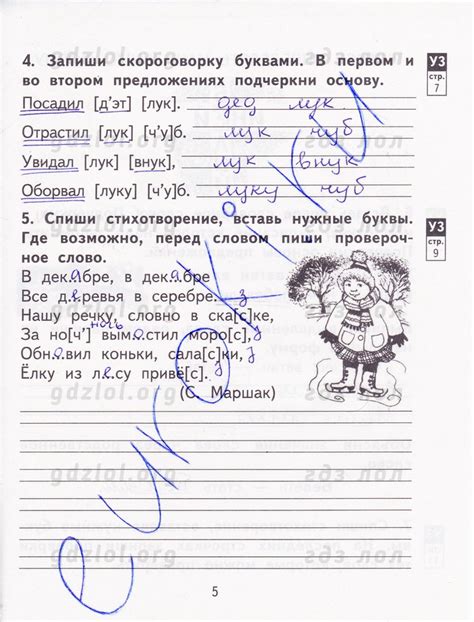 4. Запиши скороговорку буквами. В первом и
во втором предложениях подчеркни основу.
УЗ
стр.
7
Посадил [д'эт] [лук]. дед лук
Отрастил [лук] [ч'у]б. лук чуб
Увидал [лук] [внук], лук внук
Оборвал [луку] [ч'у]б. луку чуб
5. Спиши стихотворение, вставь нужные буквы.
Где возможно, перед словом пиши провероч-
ное слово.
УЗ
стр.
9
В дек.а.бре, в дек.а.бре
Все д.е.ревья в серебре. з
Нашу речку, словно в ска[с]ке,
ночь
За но[ч'] вым.о.стил моро[с], з
Обн.о.вил коньки, сала[с]ки, з
Ёлку из л.е.су привё[с]. з
(С. Маршак)
gdzlol.org
гдз лол
5